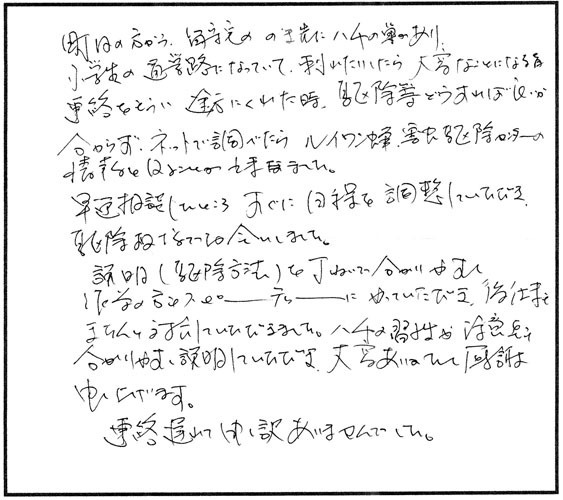 町内の方から、留守宅の のき先にハチの巣があり、
小学生の通学路になっていて、刺れたりしたら大変なことになると
連絡をもらい 途方にくれた時、駆除等どうすれば良いか
分からず、ネットで調べたら ハイワン蜂、害虫駆除センターの
情報を
早速相談したところ すぐに日程を調整していただき、
駆除
説明(駆除方法)を丁ねいで分かりやすく
作業の方もスピーディーにやっていただき、後仕事も
きちんと対応していただきました。ハチの習性や注意点を
分かりやすく説明していただき、大変ありがたく感謝
申し上げます。
連絡遅れて申し訳ありませんでした。